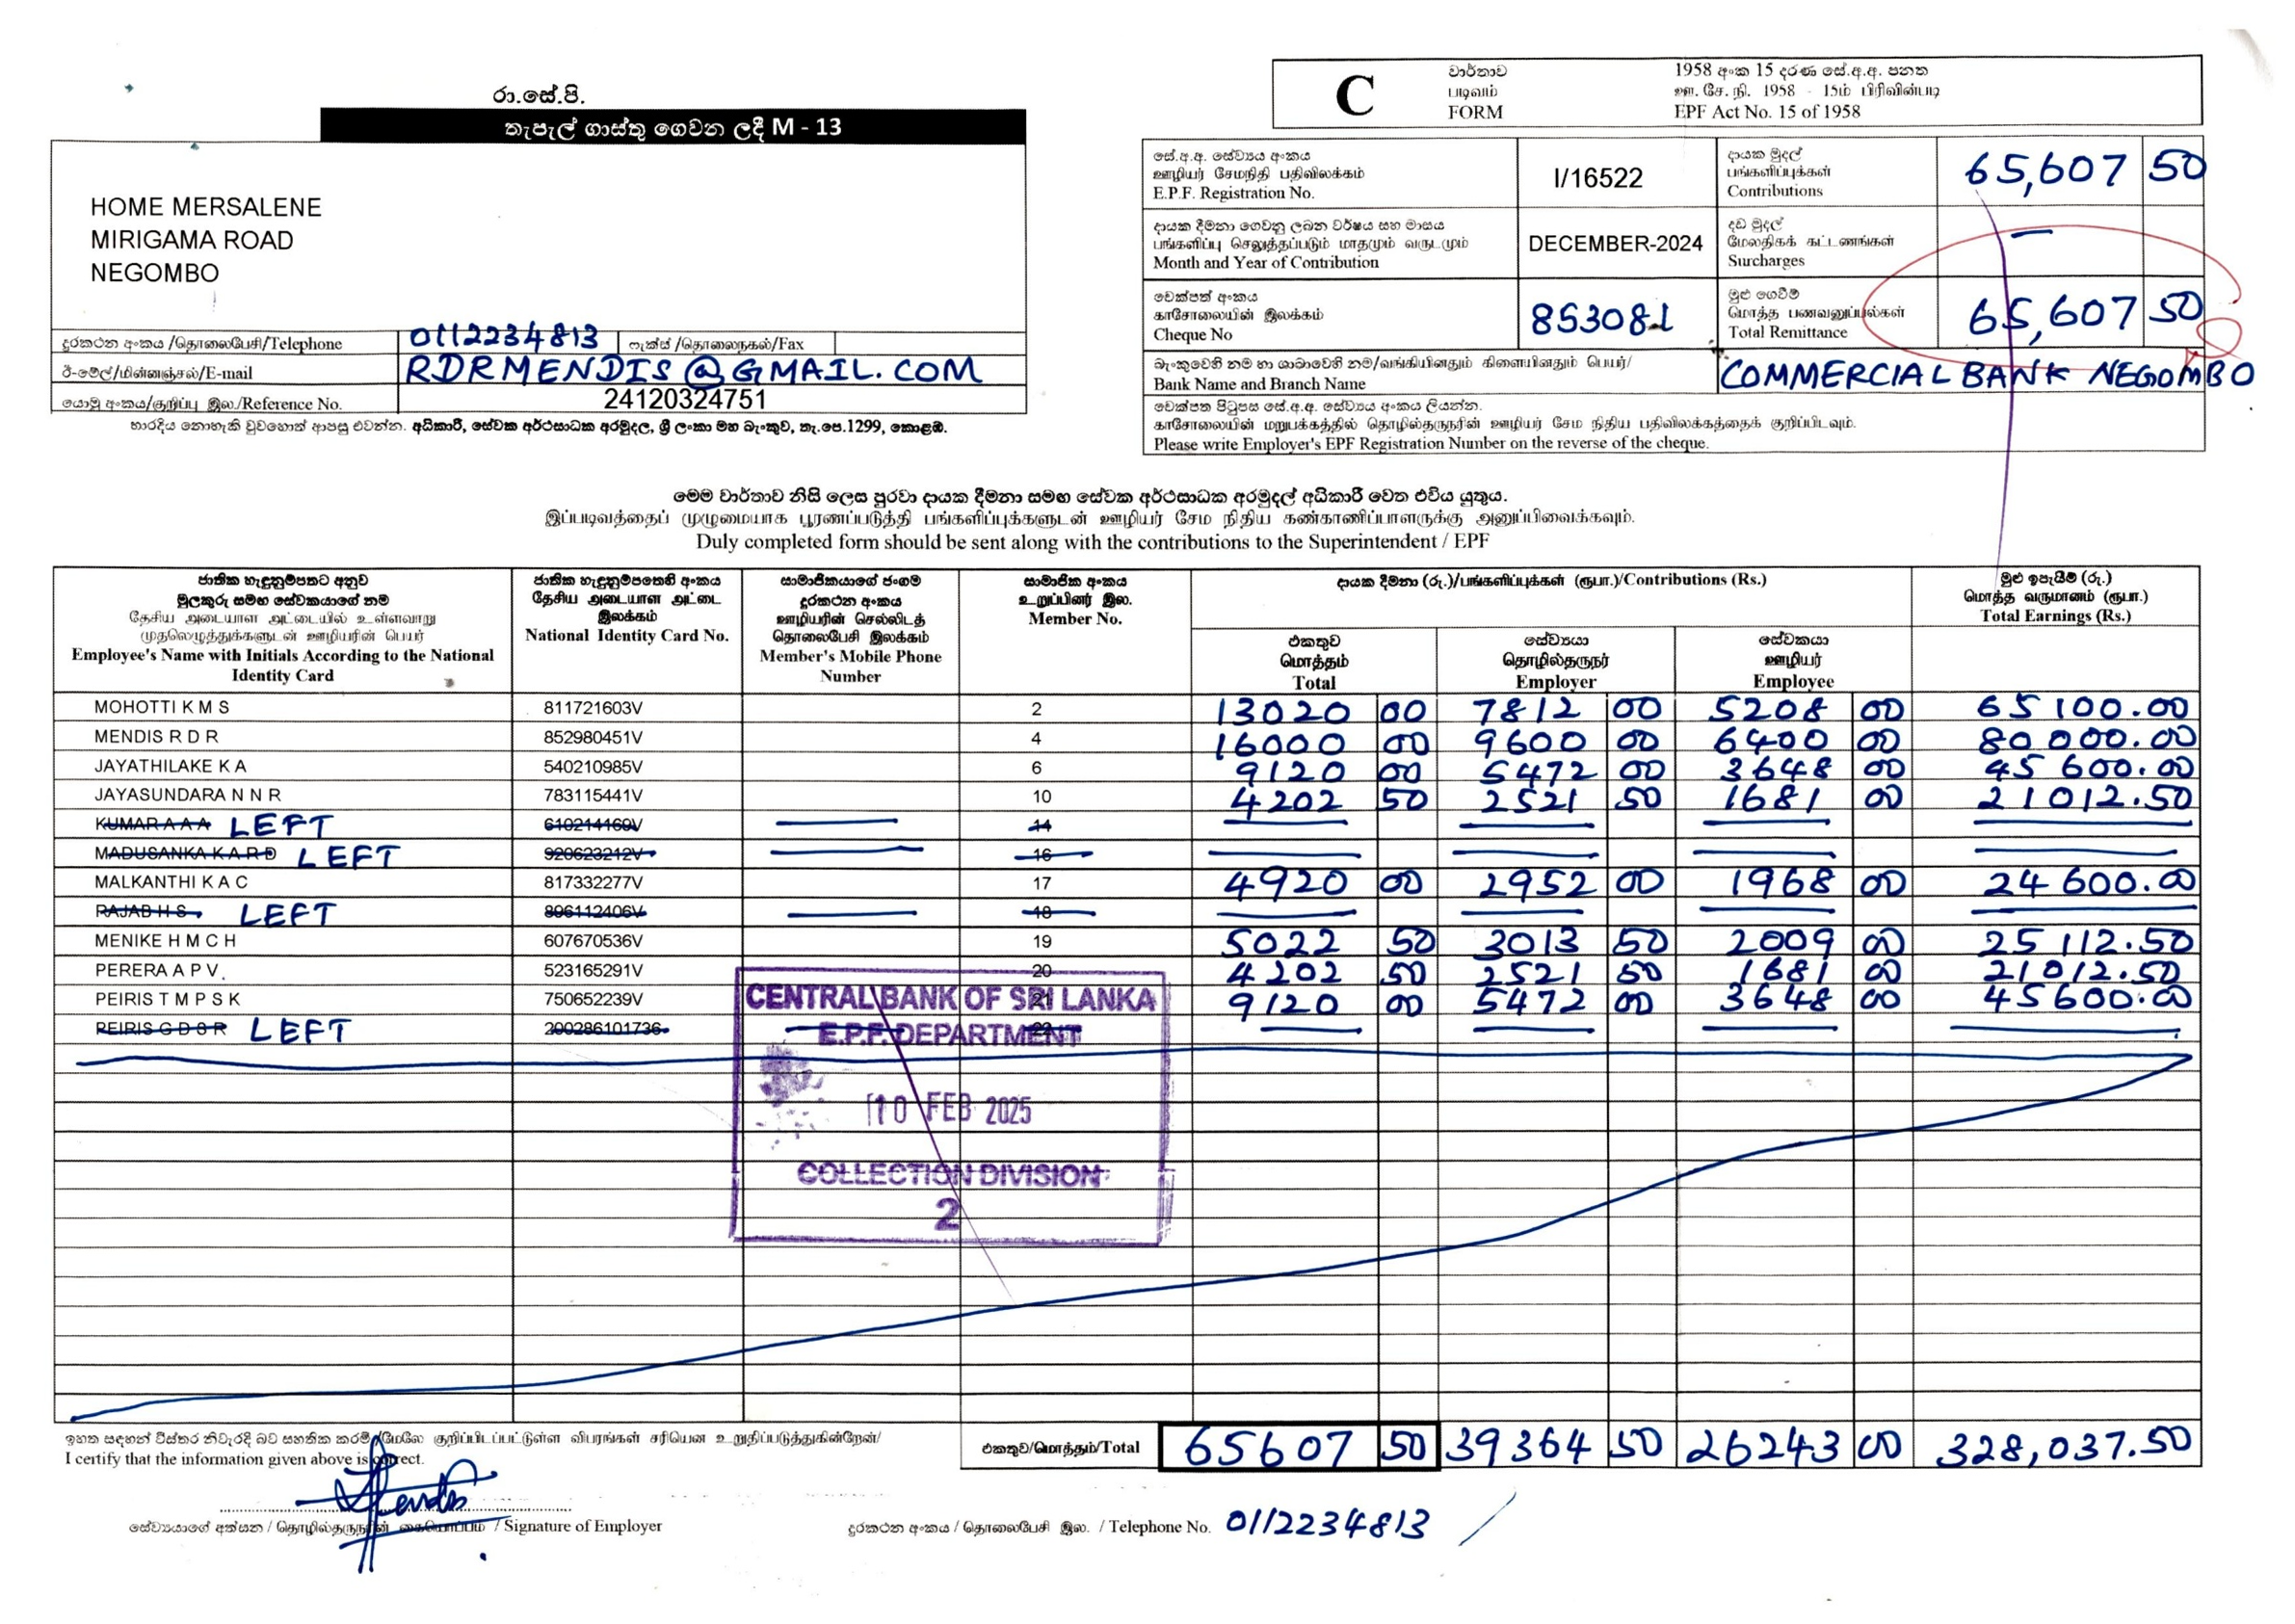 රා.සේ.පි.
තැපැල් ගාස්තු ගෙවන ලදී M - 13
HOME MERSALENE
MIRIGAMA ROAD
NEGOMBO
දුරකථන අංකය /தொலைபேசி/Telephone 0112234813 ෆැක්ස් /தொலைநகல்/Fax
ඊ-මේල්/மின்னஞ்சல்/E-mail RDRMENDIS@GMAIL.COM
යොමු අංකය/குறிப்பு இல./Reference No. 24120324751
භාරදිය නොහැකි වුවහොත් ආපසු එවන්න. අධිකාරී, සේවක අර්ථසාධක අරමුදල, ශ්‍රී ලංකා මහ බැංකුව, තැ.පෙ.1299, කොළඹ.
C
වාර්තාව
படிவம்
FORM
1958 අංක 15 දරණ සේ.අ.අ. පනත
ஊ. சே. நி. 1958 - 15ம் பிரிவின்படி
EPF Act No. 15 of 1958
සේ.අ.අ. සේව්‍යය අංකය
ஊழியர் சேமநிதி பதிவிலக்கம்
E.P.F. Registration No.
I/16522
දායක මුදල්
பங்களிப்புக்கள்
Contributions
65,607 50
දායක දීමනා ගෙවනු ලබන වර්ෂය සහ මාසය
பங்களிப்பு செலுத்தப்படும் மாதமும் வருடமும்
Month and Year of Contribution
DECEMBER-2024
දඩ මුදල්
மேலதிகக் கட்டணங்கள்
Surcharges
–
චෙක්පත් අංකය
காசோலையின் இலக்கம்
Cheque No
853081
මුළු ගෙවීම්
மொத்த பணவனுப்பல்கள்
Total Remittance
65,607 50
බැංකුවෙහි නම හා ශාඛාවෙහි නම/வங்கியினதும் கிளையினதும் பெயர்/
Bank Name and Branch Name
COMMERCIAL BANK NEGOMBO
චෙක්පත පිටුපස සේ.අ.අ. සේව්‍යය අංකය ලියන්න.
காசோலையின் மறுபக்கத்தில் தொழில்தருநரின் ஊழியர் சேம நிதிய பதிவிலக்கத்தைக் குறிப்பிடவும்.
Please write Employer's EPF Registration Number on the reverse of the cheque.
මෙම වාර්තාව නිසි ලෙස පුරවා දායක දීමනා සමඟ සේවක අර්ථසාධක අරමුදල් අධිකාරී වෙත එවිය යුතුය.
இப்படிவத்தைப் முழுமையாக பூரணப்படுத்தி பங்களிப்புக்களுடன் ஊழியர் சேம நிதிய கண்காணிப்பாளருக்கு அனுப்பிவைக்கவும்.
Duly completed form should be sent along with the contributions to the Superintendent / EPF
ජාතික හැඳුනුම්පතට අනුව
මුලකුරු සමඟ සේවකයාගේ නම
தேசிய அடையாள அட்டையில் உள்ளவாறு
முதலெழுத்துக்களுடன் ஊழியரின் பெயர்
Employee's Name with Initials According to the National
Identity Card
ජාතික හැඳුනුම්පතෙහි අංකය
தேசிய அடையாள அட்டை
இலக்கம்
National Identity Card No.
සාමාජිකයාගේ ජංගම
දුරකථන අංකය
ஊழியரின் செல்லிடத்
தொலைபேசி இலக்கம்
Member's Mobile Phone
Number
සාමාජික අංකය
உறுப்பினர் இல.
Member No.
දායක දීමනා (රු.)/பங்களிப்புக்கள் (ரூபா.)/Contributions (Rs.)
එකතුව
மொத்தம்
Total
සේව්‍යයා
தொழில்தருநர்
Employer
සේවකයා
ஊழியர்
Employee
මුළු ඉපැයීම් (රු.)
மொத்த வருமானம் (ரூபா.)
Total Earnings (Rs.)
MOHOTTI K M S 811721603V 2 13020 00 7812 00 5208 00 65100.00
MENDIS R D R 852980451V 4 16000 00 9600 00 6400 00 80000.00
JAYATHILAKE K A 540210985V 6 9120 00 5472 00 3648 00 45600.00
JAYASUNDARA N N R 783115441V 10 4202 50 2521 50 1681 00 21012.50
KUMAR A A A LEFT 610214160V 14
MADUSANKA K A R D LEFT 920623212V 16
MALKANTHI K A C 817332277V 17 4920 00 2952 00 1968 00 24600.00
RAJAB H S LEFT 806112406V 18
MENIKE H M C H 607670536V 19 5022 50 3013 50 2009 00 25112.50
PERERA A P V 523165291V 20 4202 50 2521 50 1681 00 21012.50
PEIRIS T M P S K 750652239V 21 9120 00 5472 00 3648 00 45600.00
PEIRIS G D S R LEFT 200286101736 22
CENTRAL BANK OF SRI LANKA
E.P.F. DEPARTMENT
10 FEB 2025
COLLECTION DIVISION
2
ඉහත සඳහන් විස්තර නිවැරදි බව සහතික කරමි/மேலே குறிப்பிடப்பட்டுள்ள விபரங்கள் சரியென உறுதிப்படுத்துகின்றேன்/
I certify that the information given above is correct.
එකතුව/மொத்தம்/Total 65607 50 39364 50 26243 00 328,037.50
සේව්‍යයාගේ අත්සන / தொழில்தருநரின் கையொப்பம் / Signature of Employer
දුරකථන අංකය / தொலைபேசி இல. / Telephone No. 0112234813